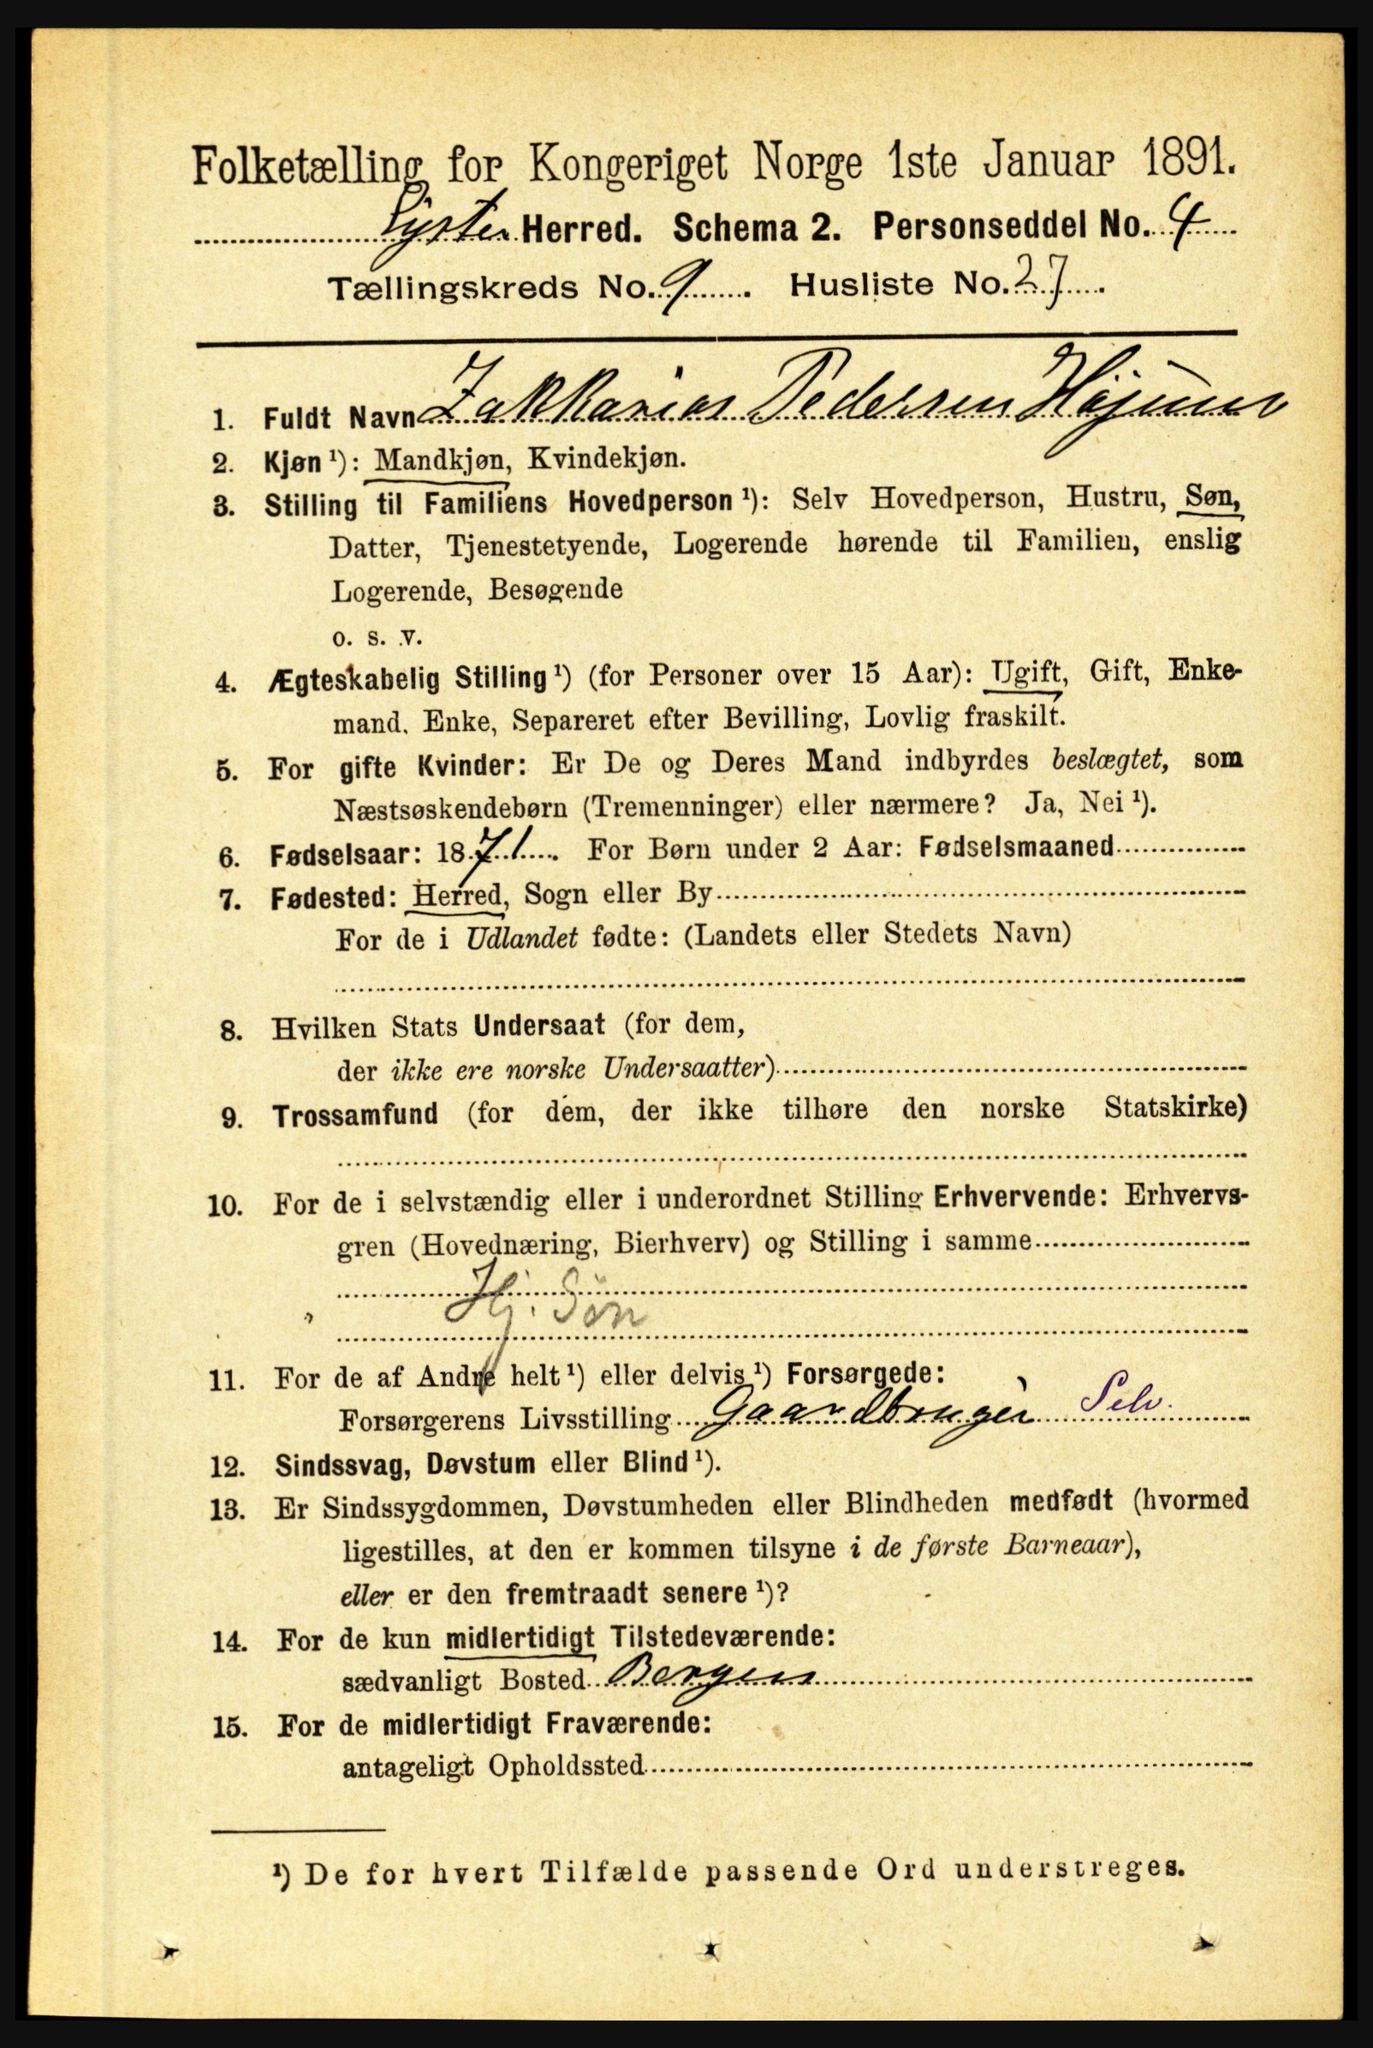 Folketælling for Kongeriget Norge 1ste Januar 1891.
Lyster Herred. Schema 2. Personseddel No. 4
Tællingskreds No. 9. Husliste No. 27.
1. Fuldt Navn Zakkarias Pedersen
2. Kjøn ¹): Mandkjøn, Kvindekjøn.
3. Stilling til Familiens Hovedperson ¹): Selv Hovedperson, Hustru, Søn,
Datter, Tjenestetyende, Logerende hørende til Familien, enslig
Logerende, Besøgende
o. s. v.
4. Ægteskabelig Stilling ¹) (for Personer over 15 Aar): Ugift, Gift, Enke-
mand, Enke, Separeret efter Bevilling, Lovlig fraskilt.
5. For gifte Kvinder: Er De og Deres Mand indbyrdes beslægtet, som
Næstsøskendebørn (Tremenninger) eller nærmere? Ja, Nei ¹).
6. Fødselsaar: 1871. For Børn under 2 Aar: Fødselsmaaned
7. Fødested: Herred, Sogn eller By
For de i Udlandet fødte: (Landets eller Stedets Navn)
8. Hvilken Stats Undersaat (for dem,
der ikke ere norske Undersaatter)
9. Trossamfund (for dem, der ikke tilhøre den norske Statskirke)
10. For de i selvstændig eller i underordnet Stilling Erhvervende: Erhvervs-
gren (Hovednæring, Bierhverv) og Stilling i samme
Hj. Søn
11. For de af Andre helt ¹) eller delvis ¹) Forsørgede:
Forsørgerens Livsstilling Gaardbruger Selv.
12. Sindssvag, Døvstum eller Blind ¹).
13. Er Sindssygdommen, Døvstumheden eller Blindheden medfødt (hvormed
ligestilles, at den er kommen tilsyne i de første Barneaar),
eller er den fremtraadt senere ¹)?
14. For de kun midlertidigt Tilstedeværende:
sædvanligt Bosted Bergen
15. For de midlertidigt Fraværende:
antageligt Opholdssted
¹) De for hvert Tilfælde passende Ord understreges.